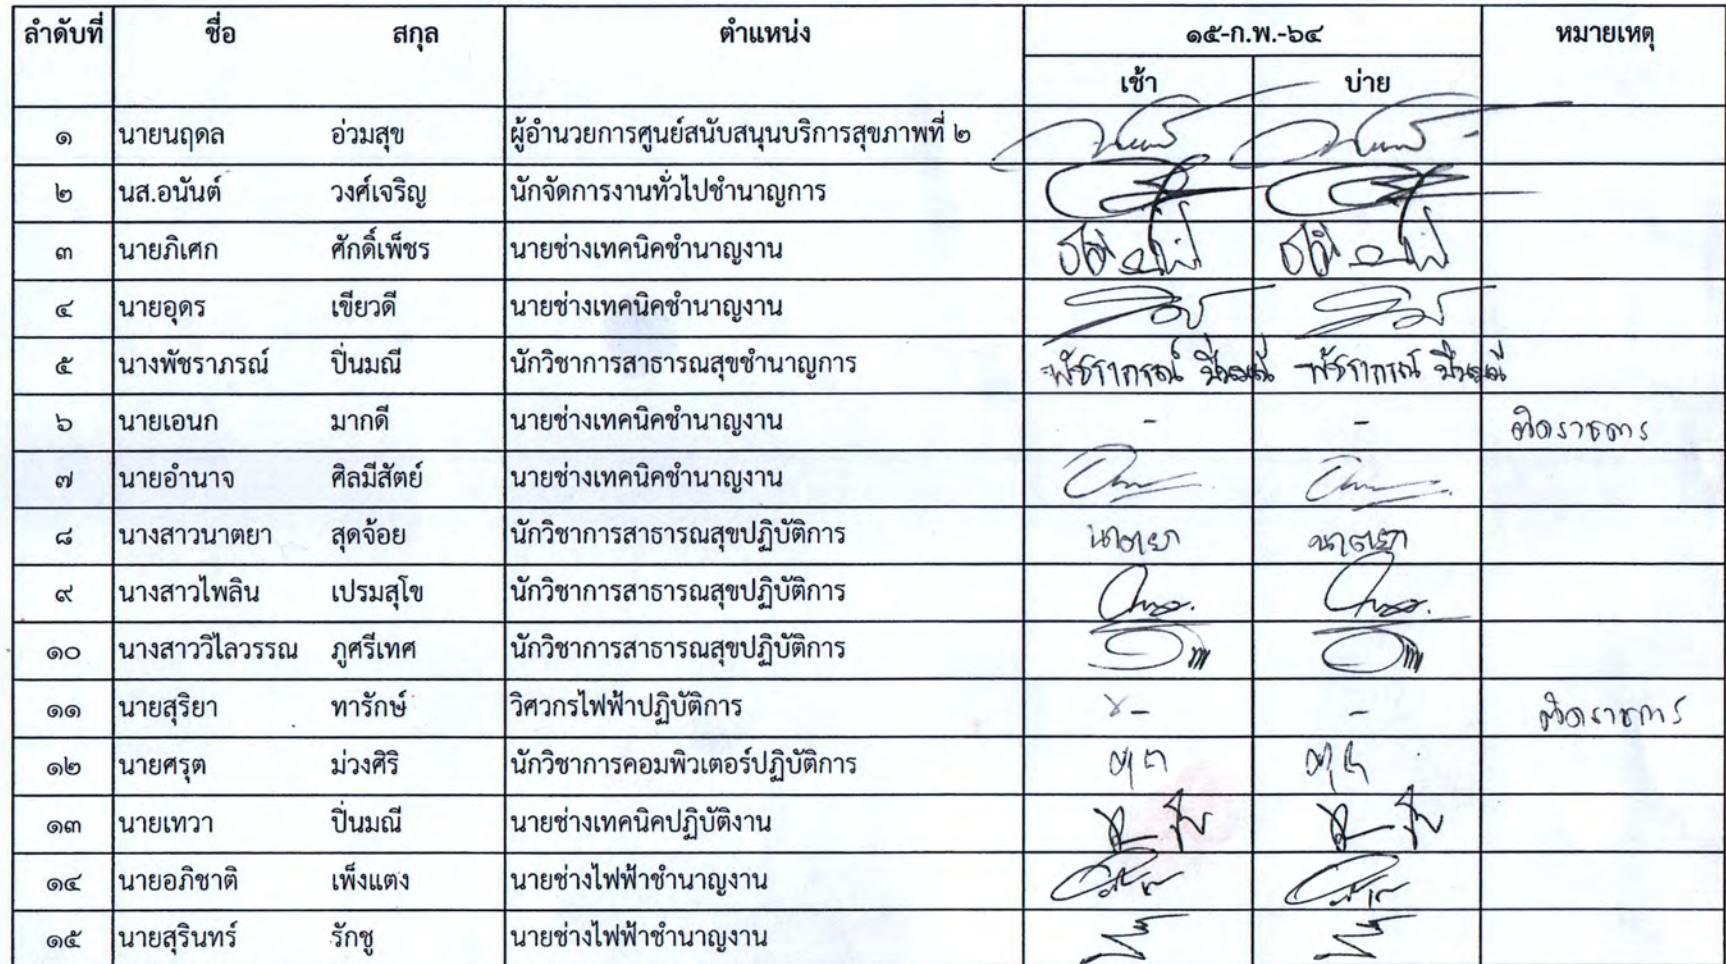 ลำดับที่ ชื่อ สกุล ตำแหน่ง ๑๕-ก.พ.-๖๔ หมายเหตุ
เช้า บ่าย
๑ นายนฤดล อ่วมสุข ผู้อำนวยการศูนย์สนับสนุนบริการสุขภาพที่ ๒
๒ นส.อนันต์ วงศ์เจริญ นักจัดการงานทั่วไปชำนาญการ
๓ นายภิเศก ศักดิ์เพ็ชร นายช่างเทคนิคชำนาญงาน
๔ นายอุดร เขียวดี นายช่างเทคนิคชำนาญงาน
๕ นางพัชราภรณ์ ปิ่นมณี นักวิชาการสาธารณสุขชำนาญการ พัชราภรณ์ ปิ่นมณี พัชราภรณ์ ปิ่นมณี
๖ นายเอนก มากดี นายช่างเทคนิคชำนาญงาน - - ติดราชการ
๗ นายอำนาจ ศิลมีสัตย์ นายช่างเทคนิคชำนาญงาน
๘ นางสาวนาตยา สุดจ้อย นักวิชาการสาธารณสุขปฏิบัติการ นาตยา นาตยา
๙ นางสาวไพลิน เปรมสุโข นักวิชาการสาธารณสุขปฏิบัติการ
๑๐ นางสาววิไลวรรณ ภูศรีเทศ นักวิชาการสาธารณสุขปฏิบัติการ
๑๑ นายสุริยา ทารักษ์ วิศวกรไฟฟ้าปฏิบัติการ - - ติดราชการ
๑๒ นายศรุต ม่วงศิริ นักวิชาการคอมพิวเตอร์ปฏิบัติการ
๑๓ นายเทวา ปิ่นมณี นายช่างเทคนิคปฏิบัติงาน
๑๔ นายอภิชาติ เพ็งแตง นายช่างไฟฟ้าชำนาญงาน
๑๕ นายสุรินทร์ รักชู นายช่างไฟฟ้าชำนาญงาน